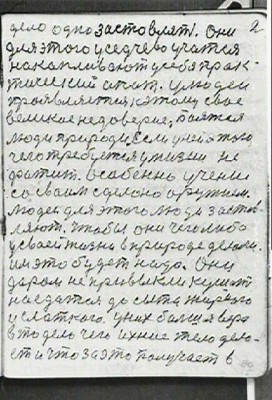 2
дело одно заставлят. Они
для этого усе дчево учатся
накапливают у себя прак-
тический опит. У людей
проявляется к этому свое
великое недоверие, боятся
люди природы, если у него того
чего требуется у жизни не
фатит. Особенно учение
со своим сделано оружием.
людей для этого люди застав-
ляют. Чтобы они чего либо
у своей жизни в природе делали.
им это будет надо. Они
даром не привыкли кушат
наедатся до сыта жирного
и слаткого. у них болшая вера
в то дело чего ихние тело дела-
ет и что за это получает в